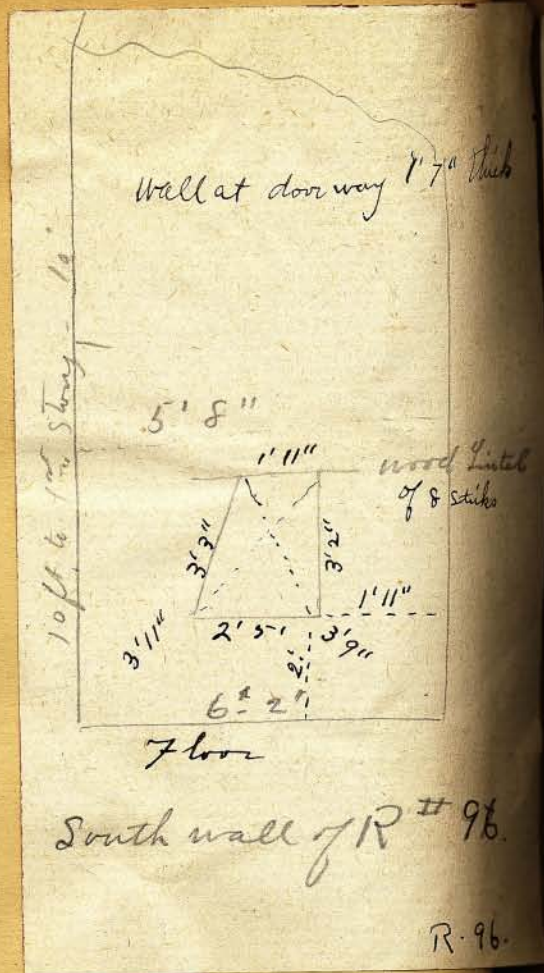 Wall at doorway 1' 7" thick
10 ft. to 1st Story - 10'
5' 8"
1' 11"
wood Lintel
of 8 sticks
3' 3"
3' 2"
1' 11"
3' 11"
2' 5'
3' 9"
2'
6' 2"
Floor
South wall of R # 96.
R. 96.